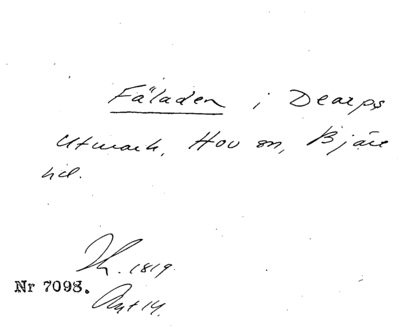 Fäladen i Dearps
Utmark, Hov sn, Bjäre
hd.
1819.
Nr 7098.
Akt 14.